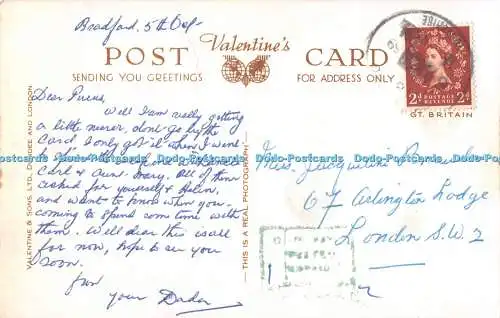 Bradford, 5th Oct
POST Valentine's CARD
SENDING YOU GREETINGS
FOR ADDRESS ONLY
2d POSTAGE REVENUE 2d
GT. BRITAIN
Dear
Well I am really getting
a little nearer, don't go by the
Card, I only got it when I went
Carl & Aunt Mary. All of them
asked for yourself &
and want to know when you
coming to spend some time with
them. Well dear this is all
for now, hope to see you
soon.
from
your
Miss Jacqueline
67 Arlington Lodge
London S.W.2
VALENTINE & SONS, LTD., DUNDEE AND LONDON
THIS IS A REAL PHOTOGRAPH
Dodo-Postcards Dodo-Postcards Dodo-Postcards Dodo-Postcards Dodo-Postcards